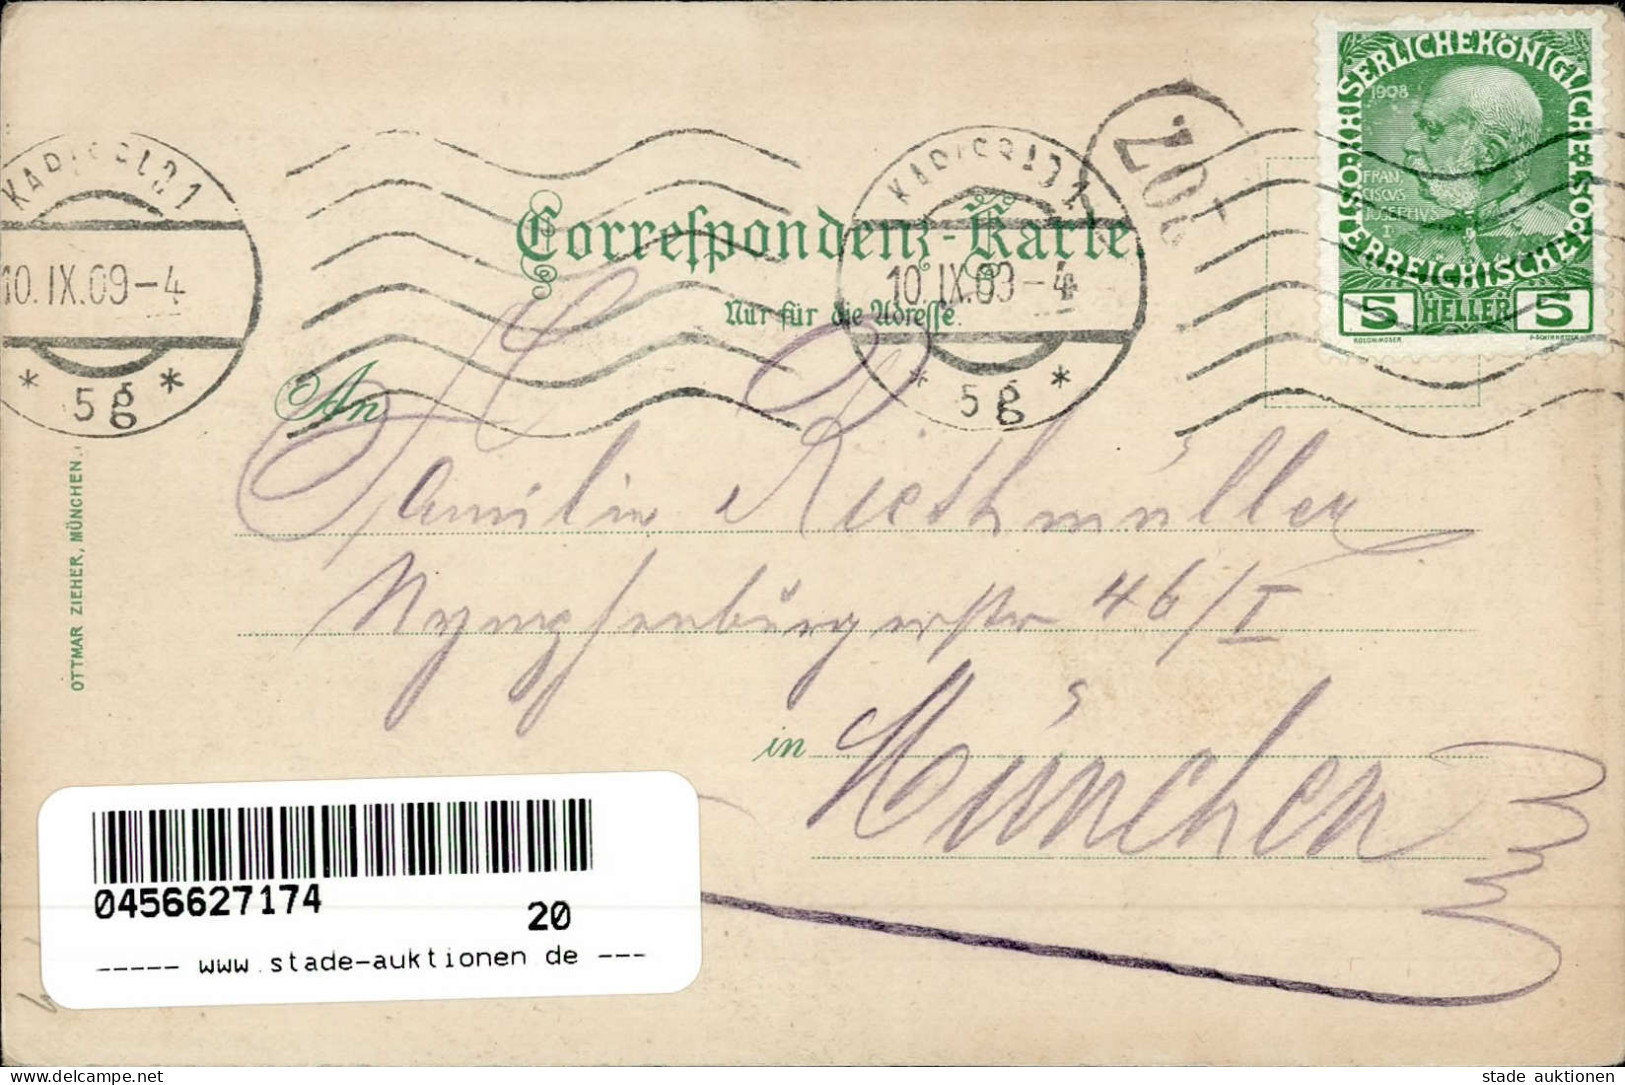 KAISERLICHE KÖNIGLICHE ÖSTERREICHISCHE POST
1908
FRAN
CISCVS
IOSEPHVS
I
5 HELLER 5
207
10.IX.09-4
* 5g *
10.IX.09-4
* 5g *
Correspondenz-Karte.
Nur für die Adresse.
An
Familie Riethmüller
Nymphenburgerstr 46/I
in München
OTTMAR ZIEHER, MÜNCHEN.
0456627174
20
----- www.stade-auktionen.de ---
www.delcampe.net
stade auktionen